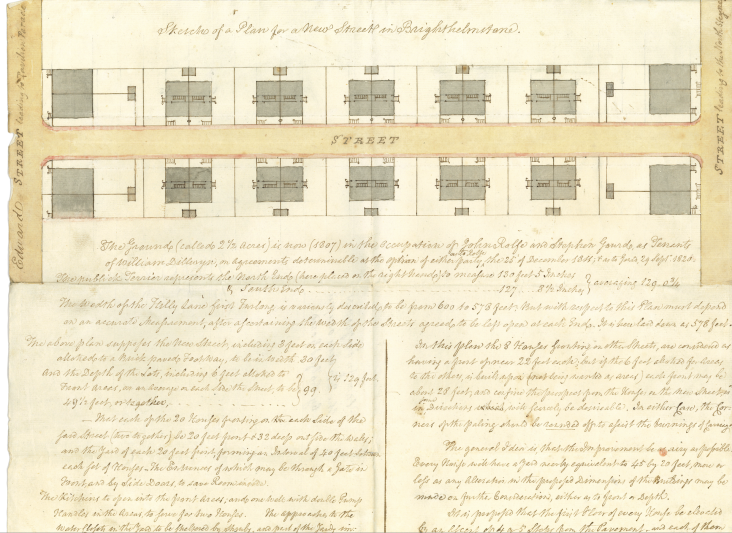 Sketch of a Plan for a New Street in Brighthelmstone.
Edward STREET leading to
STREET leading to the North
STREET
The Ground (called 2½ Acres) is now (1807) in the occupation of John Rolfe and Stephen Gourde, as Tenants
of William on agreements determinable at the option of either party, the 25 of December 1811, as to Rolfe & as to Gourde, 29 Septr 1820.
The publick Terrier represents the North End (here placed on the right hand) to measure 130 feet 5 Inches
& South End 127 Inches averaging 129
The Width of the Hilly Laine first Furlong is variously described, to be from 600 to 578 feet. But with respect to this Plan must depend
on an accurate Measurement, after ascertaining the Width of the Streets agreed to be left open at each End. It is here laid down as 578 feet.
The above plan supposes the New Street, including 8 feet on each side
allotted to a Brick paved Footway, to be in width 30 feet
And the Depth of the Lots, including 6 feet allotted to
Front areas, on an average on each side the Street, to be
49½ feet, or together 99
is 129 feet
That each of the 20 Houses fronting on the each Side of the
said Street (two together) be 20 feet front & 32 deep outside the Walls;
and the Yard of each 20 feet front forming an Interval of 40 feet between
each set of Houses. The Entrances of which may be through a Gate in
Front, and by Side Doors, to save Room inside.
The Kitchens to open into the front Areas, and one Well with double Pump
Handles in the Areas, to serve for two Houses. The approaches to the
Water Closets in the Yard to be sheltered by Shrubs, and part of the Yards
In this plan the 8 Houses fronting on other Streets, are considered as
having a front of near 22 feet each; but if the 6 feet allowed for Areas
to the other, is built upon (not being wanted as areas) each front may be
about 28 feet, and confine the prospect from the Houses in the New Street
in Directions which will scarcely be desirable. In either Case, the Cor-
ners of the paling should be rounded off to assist the turnings of Carriages
The general Idea is that the Improvement be as airy as possible.
Every House will have a Yard nearly equivalent to 45 by 20 feet, more or
less as any alteration in the proposed Dimensions of the Buildings may be
made on further Consideration, either as to front or Depth.
It is proposed that the first Floor of every House be elevated
by an ascent of 4 or 5 Steps from the Pavement, and each of them